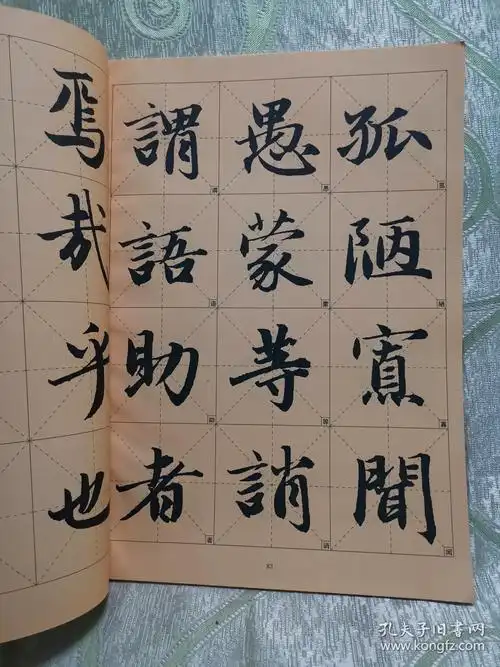 孤陋寡聞
愚蒙等誚
謂語助者
焉哉乎也
83
孔夫子旧书网
www.kongfz.com